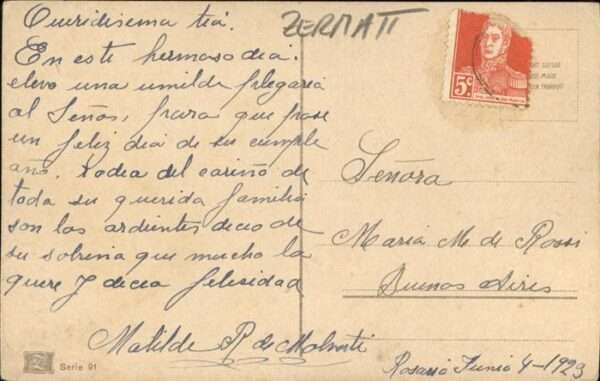 Queridisema tia.
En este hermoso dia.
elevo una umilde plegaria
al Señor, para que pase
un feliz dia de su cumple
año. Rodia del cariño de
toda su querida familia
son los ardientes deceo de
su sobrina que mucho la
quere y decea felisidad
Matilde R. de
ZERMATT
5c
Señora
Maria M. de Rossi
Buenos Aires
Rosario Junio 4-1923
Serie 91